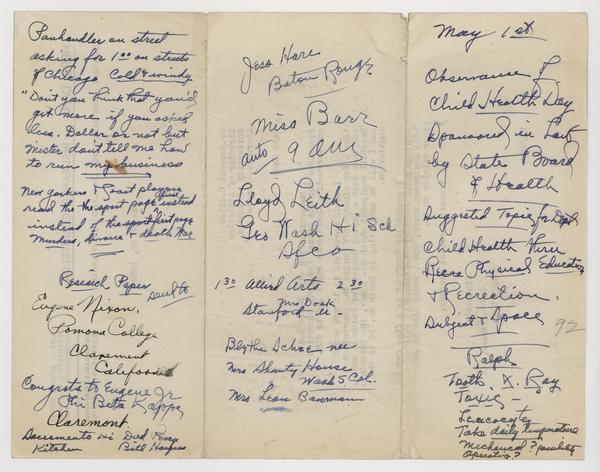 Panhandler on street
asking for 1.00 on streets
of Chicago Cold & windy
"Don't you think that you'd
get more if you asked
less. Dollar or not but
Mister don't tell me how
to run my business
New Yorkers
read the the sport page instead
instead of the sport first page
Murders, divorce & death
Research Paper
send to
Eugene Nixon,
Pomona College
Claremont
California
Congrats to Eugene Jr
Phi Beta Kappa
Claremont.
Sacramento Hi
Kitchen
Jess Hare
Baton Rouge
Miss Barr
auto 9 am
Lloyd Leith
Geo Wash Hi Sch
Sfco
1:30 Allied Arts 2:30
Mrs Doak
Stanford U -
Blythe
Mrs Shanty House
Wash S Col.
Mrs Leon
May 1st
Observance of
Child Health Day
Sponsored in
by State Board
of Health
Suggested Topic for
Child Health thru
Physical Education
& Recreation.
Subject & Space
92
Ralph
Tooth X. Ray
Toxic -
Leucocyte
Take daily temperature
Mechanical?
Operation?